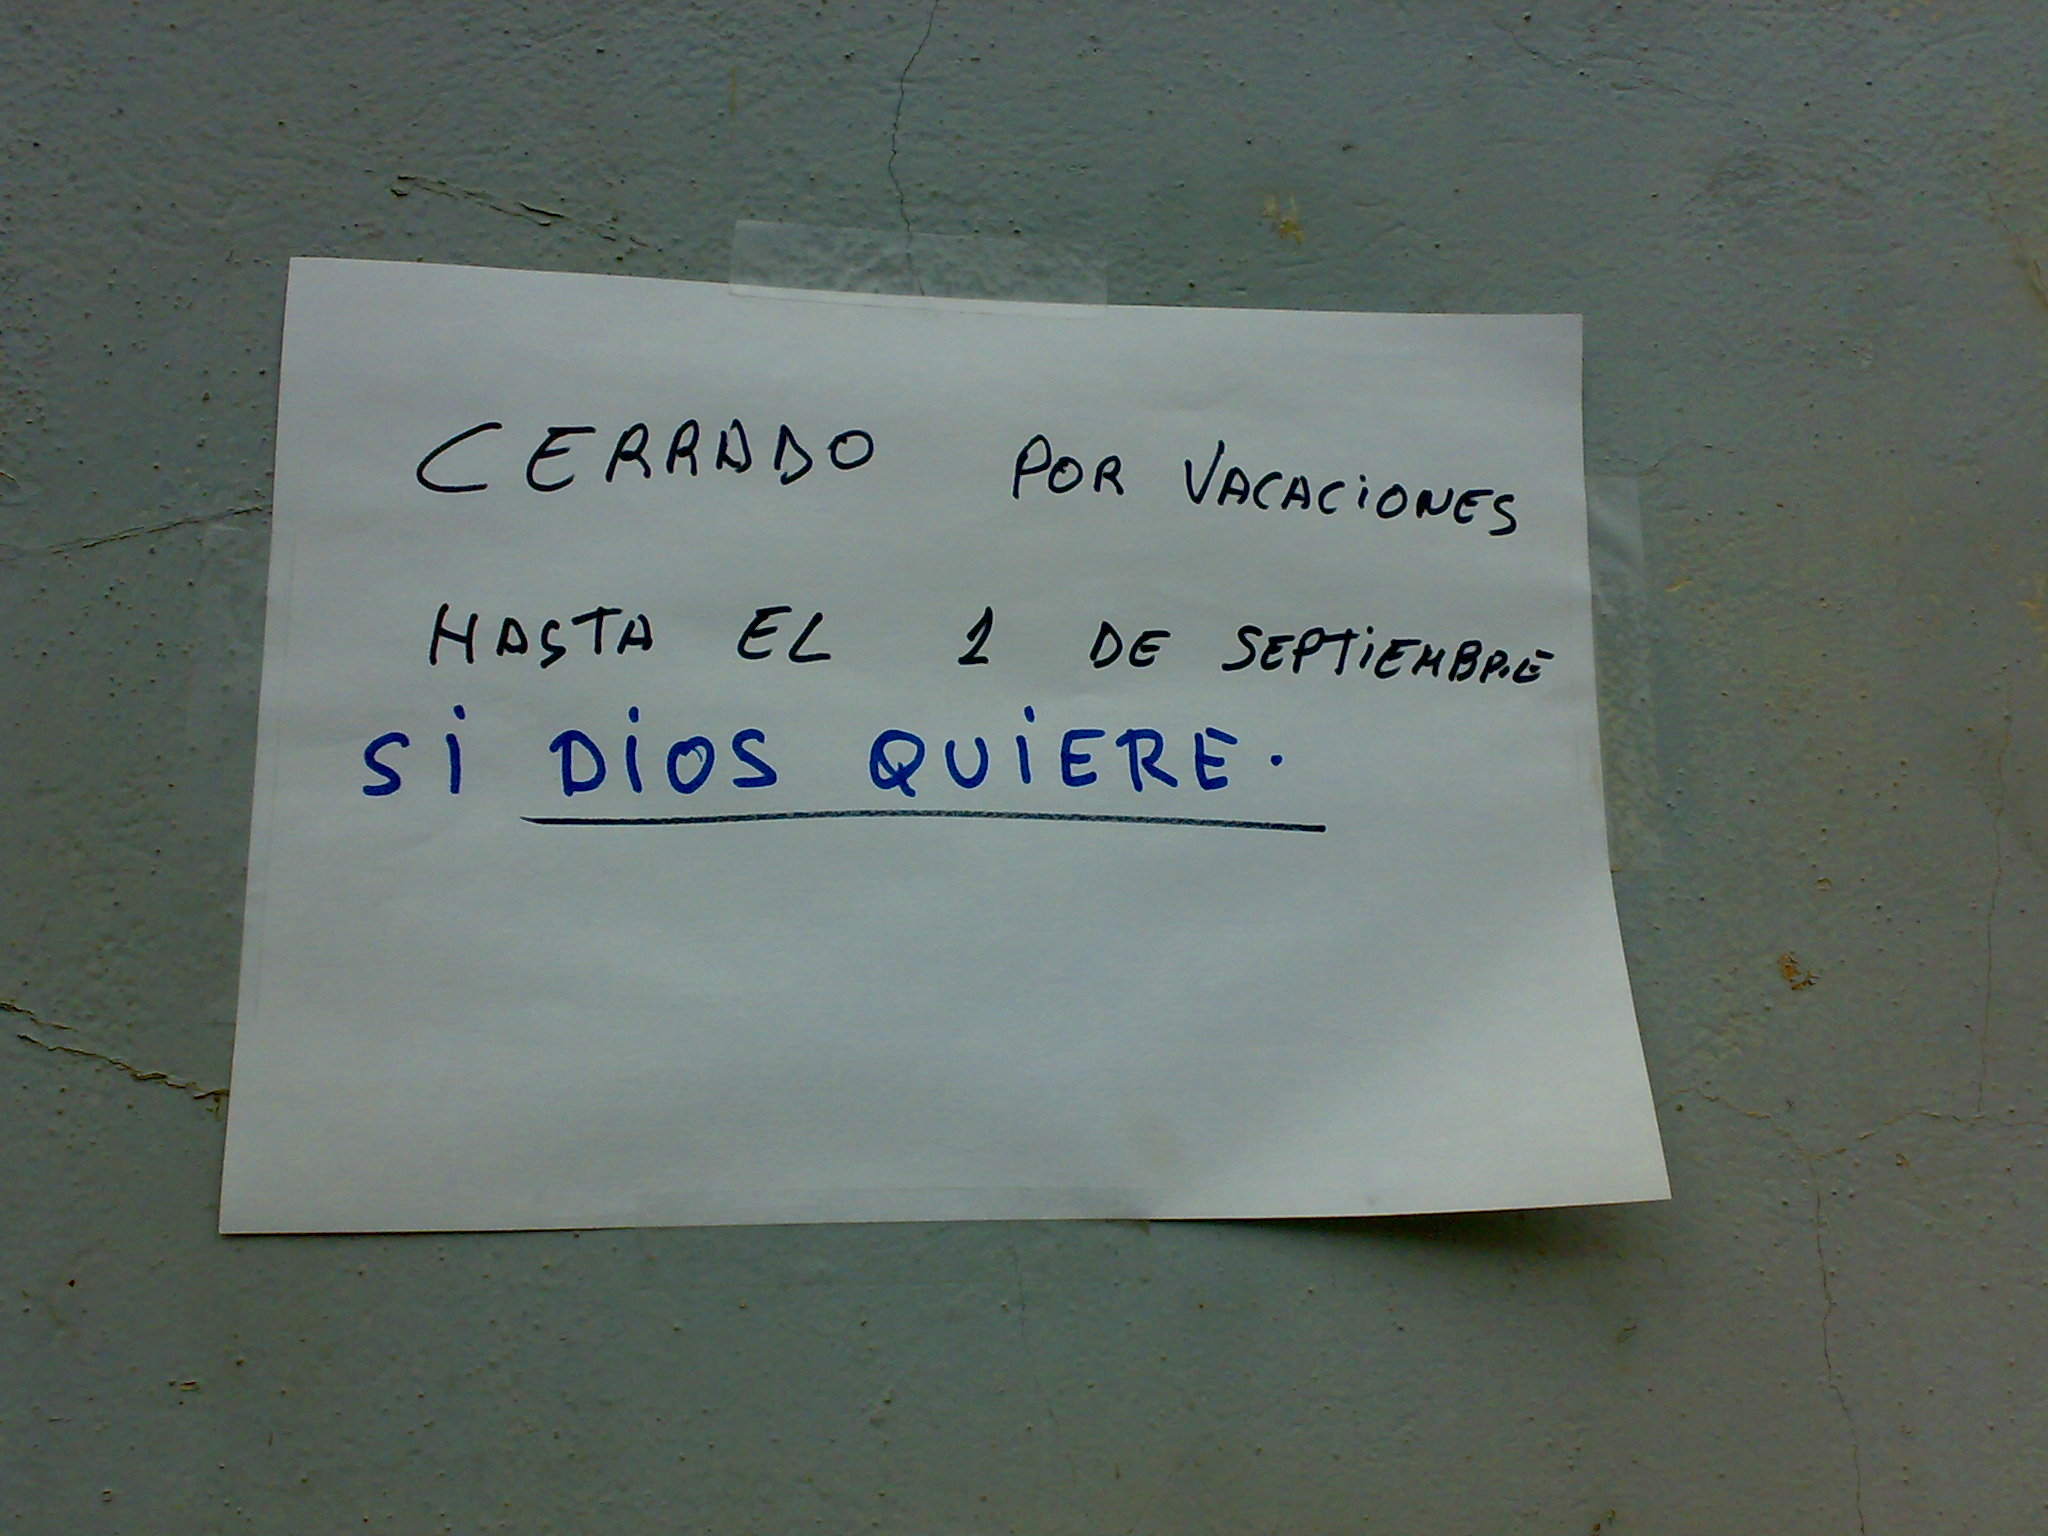 CERRADO POR VACACIONES
HASTA EL 1 DE SEPTIEMBRE
SI DIOS QUIERE.